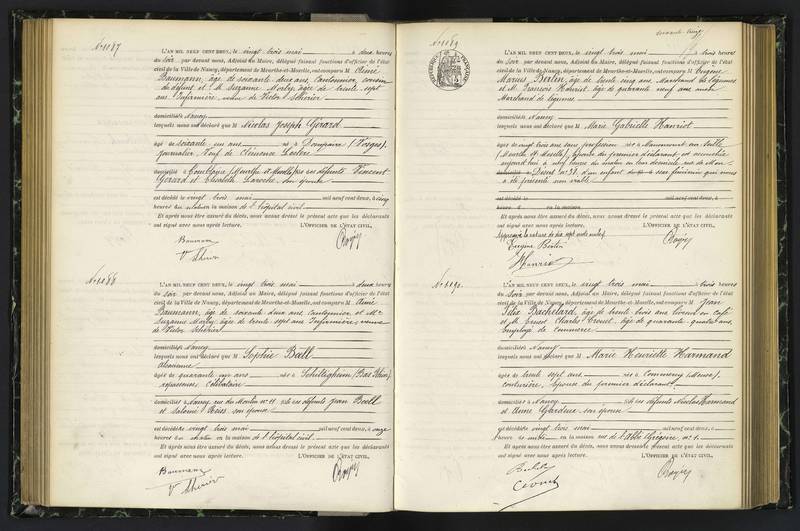 N° 1187
L'AN MIL NEUF CENT DEUX, le vingt trois mai à deux heures
du soir par devant nous, Adjoint au Maire, délégué faisant fonctions d'officier de l'état
civil de la Ville de Nancy, département de Meurthe-et-Moselle, ont comparu M Aimé
Baumann, âgé de soixante deux ans, Cantonnier, cousin
du défunt et M Suzanne Morly âgée de trente sept
ans Infirmière, veuve de Victor Schérier
domiciliés à Nancy
lesquels nous ont déclaré que M Nicolas Joseph Gérard
âgé de soixante un ans né à Dompaire (Vosges)
journalier Veuf de Clémence Leclerc
domicilié à (Meurthe et Moselle) fils des défunts Vincent
Gérard et Elisabeth Laroche son épouse
est décédé le vingt trois mai mil neuf cent deux, à cinq
heures du matin en la maison de l'hôpital civil
Et après nous être assuré du décès, nous avons dressé le présent acte que les déclarants
ont signé avec nous après lecture. L'OFFICIER DE L'ÉTAT CIVIL,
Baumann
V Schérier
N° 1188
L'AN MIL NEUF CENT DEUX, le vingt trois mai à deux heures
du soir par devant nous, Adjoint au Maire, délégué faisant fonctions d'officier de l'état
civil de la Ville de Nancy, département de Meurthe-et-Moselle, ont comparu M Aimé
Baumann, âgé de soixante deux ans, Cantonnier et Me
Suzanne Morly âgée de trente sept ans Infirmière, veuve
de Victor Schérier
domiciliés à Nancy
lesquels nous ont déclaré que M Sophie Bœll
alsacienne
âgée de quarante un ans née à Schiltigheim (Bas Rhin)
repasseuse Célibataire
domiciliée à Nancy rue du Moulin n° 11 fille des défunts Jean Boell
et Salomé Ries son épouse
est décédée le vingt trois mai mil neuf cent deux, à onze
heures du matin en la maison de l'hôpital civil
Et après nous être assuré du décès, nous avons dressé le présent acte que les déclarants
ont signé avec nous après lecture. L'OFFICIER DE L'ÉTAT CIVIL,
Baumann
V Schérier
N° 1189
L'AN MIL NEUF CENT DEUX, le vingt trois mai à trois heures
du soir par devant nous, Adjoint au Maire, délégué faisant fonctions d'officier de l'état
civil de la Ville de Nancy, département de Meurthe-et-Moselle, ont comparu M Eugène
Marius Bertin, âgé de trente cinq ans, Marchand de légumes
et M François Hanriot, âgé de quarante neuf ans
Marchand de légumes
domiciliés à Nancy
lesquels nous ont déclaré que M Marie Gabrielle Hanriot
âgée de vingt trois ans sans profession née à Manoncourt en
(Meurthe et Moselle), épouse du premier déclarant est accouchée
aujourd'hui à heures du matin en leur domicile rue de
n° 38, d'un enfant du sexe féminin qui nous
a été présenté non viable
est décédé le mil neuf cent deux, à
heures en la maison
Et après nous être assuré du décès, nous avons dressé le présent acte que les déclarants
ont signé avec nous après lecture. L'OFFICIER DE L'ÉTAT CIVIL,
Approuvé la rature de dix sept mots nuls
Eugène Bertin
Hanriot
N° 1190
L'AN MIL NEUF CENT DEUX, le vingt trois mai à trois heures
du soir par devant nous, Adjoint au Maire, délégué faisant fonctions d'officier de l'état
civil de la Ville de Nancy, département de Meurthe-et-Moselle, ont comparu M Jean
Félix Bachelard, âgé de trente trois ans Garçon de café
et M Ernest Charles âgé de quarante quatre ans,
Employé de commerce
domiciliés à Nancy
lesquels nous ont déclaré que M Marie Henriette Harmand
âgée de trente sept ans née à Commercy (Meuse),
couturière, épouse du premier déclarant
domiciliée à Nancy fille des défunts Nicolas Harmand
et Anne son épouse
est décédée le vingt trois mai mil neuf cent deux, à
heure du matin en la maison rue de l'Abbé Grégoire n° 1
Et après nous être assuré du décès, nous avons dressé le présent acte que les déclarants
ont signé avec nous après lecture. L'OFFICIER DE L'ÉTAT CIVIL,